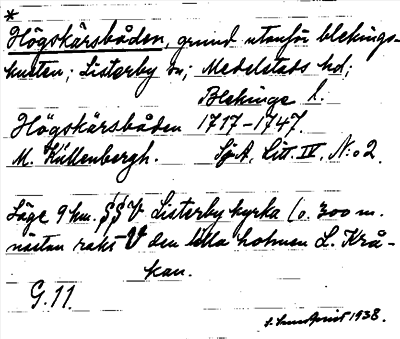 *
Högskärsbåden, grund utanför blekings-
kusten; Listerby sn; Medelstads hd;
Blekinge l.
Högskärsbåden 1717-1747.
M. Küllenbergh. SjA. Litt. IV. N:o 2.
Läge 9 km. SSV Listerby kyrka (o. 300 m.
nästan rakt V den lilla holmen L. Krå-
kan.
G. 11.
1938.